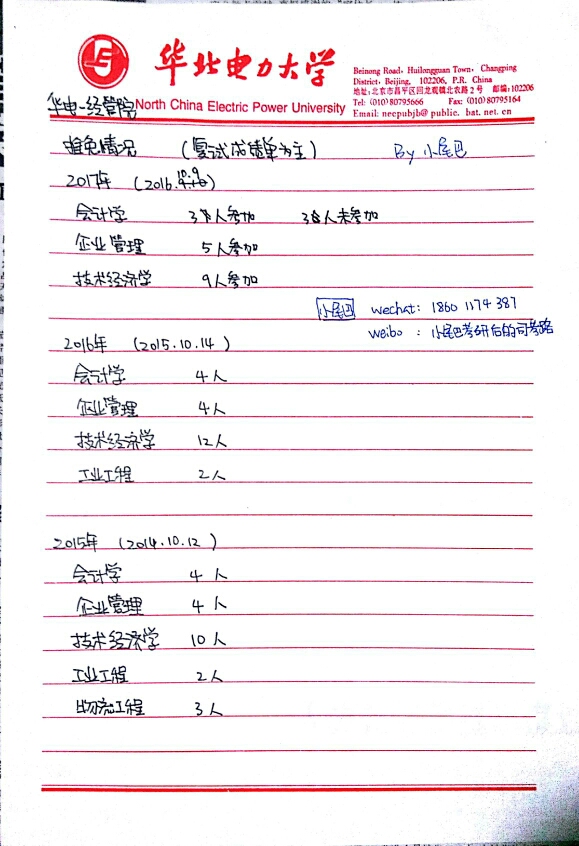 华北电力大学
North China Electric Power University
Beinong Road, Huilongguan Town, Changping
District, Beijing, 102206, P.R. China
地址:北京市昌平区回龙观镇北农路2号 邮编:102206
Tel: (010) 80795666 Fax: (010) 80795164
Email: necpubjb@public.bat.net.cn
华电-经管院
推免情况 (复试成绩单为主) By 小尾巴
2017年 (2016.
会计学 3人参加 3人未参加
企业管理 5人参加
技术经济学 9人参加
小尾巴 wechat: 18601174387
weibo : 小尾巴考研后的司考路
2016年 (2015.10.14)
会计学 4人
企业管理 4人
技术经济学 12人
工业工程 2人
2015年 (2014.10.12)
会计学 4人
企业管理 4人
技术经济学 10人
工业工程 2人
物流工程 3人